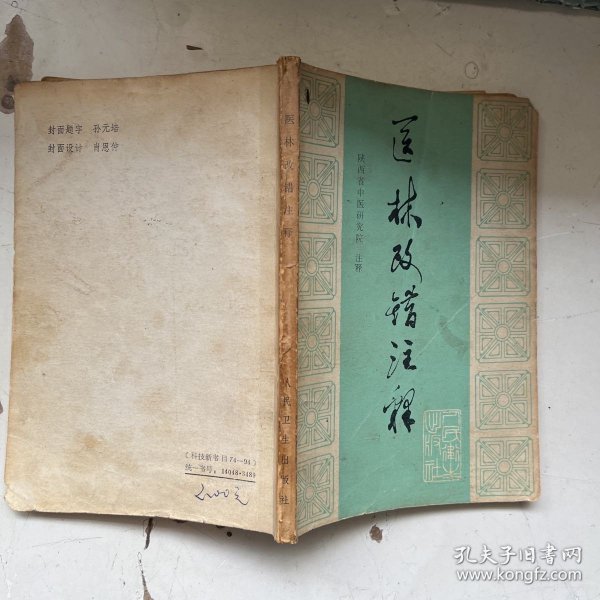 封面题字 孙元培
封面设计 肖恩作
〔科技新书目74—94〕
统一书号：14048·3489
2.00元
医林改错注释
人民卫生出版社
医林改错注释
陕西省中医研究院 注释
人民卫生出版社
孔夫子旧书网
www.kongfz.com